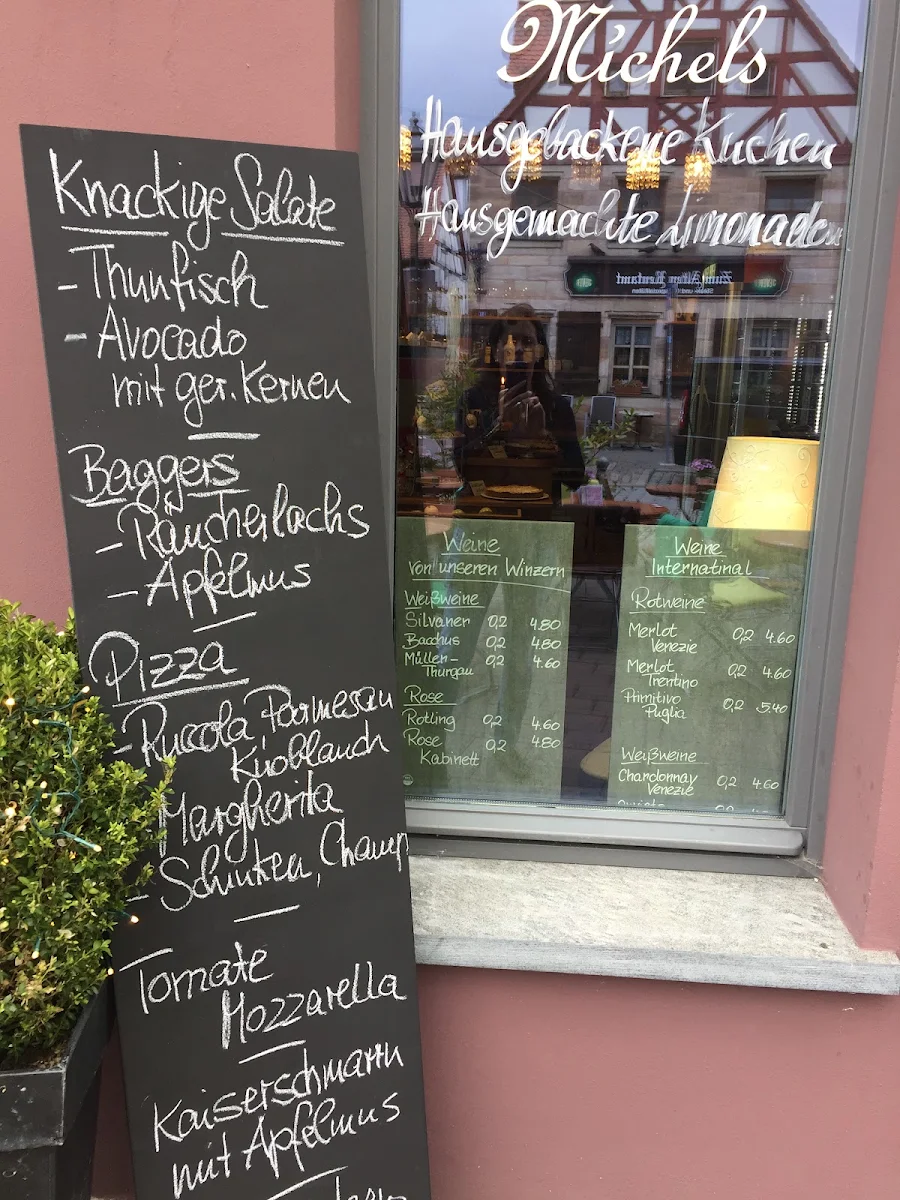 Knackige Salate
- Thunfisch
- Avocado
mit ger. Kernen
Baggers
- Räucherlachs
- Apfelmus
Pizza
- Ruccola, Parmesan
Knoblauch
Margherita
- Schinken, Champ
- Tomate
Mozzarella
Kaiserschmarrn
mit Apfelmus
Michels
Hausgebackene Kuchen
Hausgemachte Limonaden
Zum Alten Rentamt
Weine
von unseren Winzern
Weißweine
Silvaner 0,2 4.80
Bacchus 0,2 4.80
Müller-
Thurgau 0,2 4.60
Rose
Rotling 0,2 4.60
Rose 0,2 4.80
Kabinett
Weine
Internatinal
Rotweine
Merlot 0,2 4.60
Venezie
Merlot 0,2 4.60
Trentino
Primitivo 0,2 5.40
Puglia
Weißweine
Chardonnay 0,2 4.60
Venezie